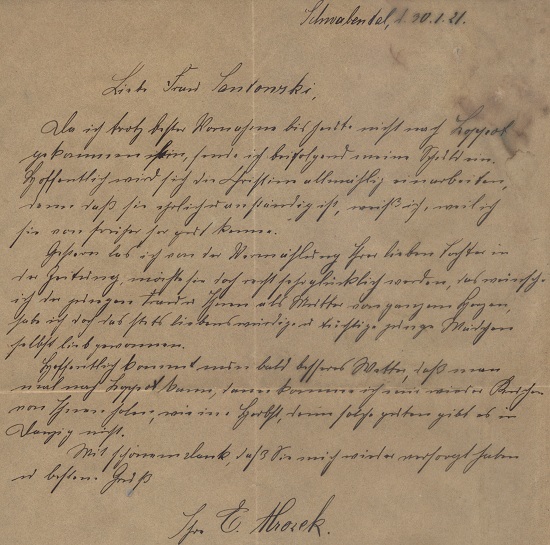 Schwabental, d. 30.1.21.
Liebe Frau Santowski,
Da ich trotz bester Vornahme bis heute nicht nach Zoppot
gekommen bin, sende ich beifolgend meine Schuld ein.
Hoffentlich wird sich die Christin allmählig einarbeiten,
denn daß sie ehrlich u. anständig ist, weiß ich, weil ich
sie von früher her gut kenne.
Gestern las ich von der Vermählung Ihrer lieben Tochter in
der Zeitung, möchte sie doch recht sehr glücklich werden, das wünsche
ich der jungen Frau u. Ihnen als Mutter von ganzem Herzen,
habe ich doch das stets liebenswürdige u. tüchtige junge Mädchen
selbst lieb gewonnen.
Hoffentlich kommt nun bald besseres Wetter, daß man
mal nach Zoppot kann, dann komme ich mir wieder
von Ihnen holen, wie im Herbst, denn solche guten gibt es in
Danzig nicht.
Mit schönem Dank, daß Sie mich wieder versorgt haben
u. bestem Gruß
Ihre E. Mrozek.